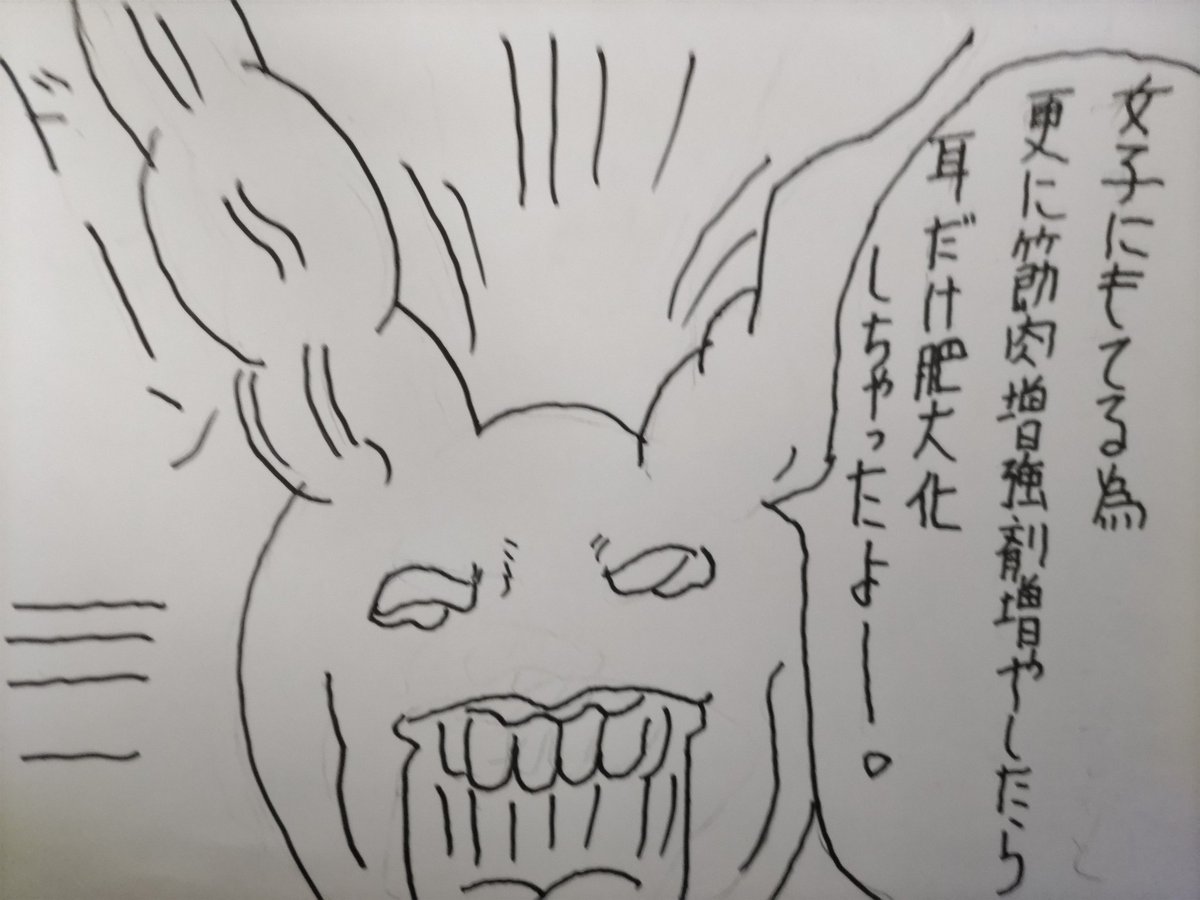 女子にもてる為
更に筋肉増強剤増やしたら
耳だけ肥大化
しちゃったよー。